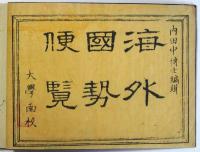 內田中博士編輯
海外
國勢
便覧
大學南校